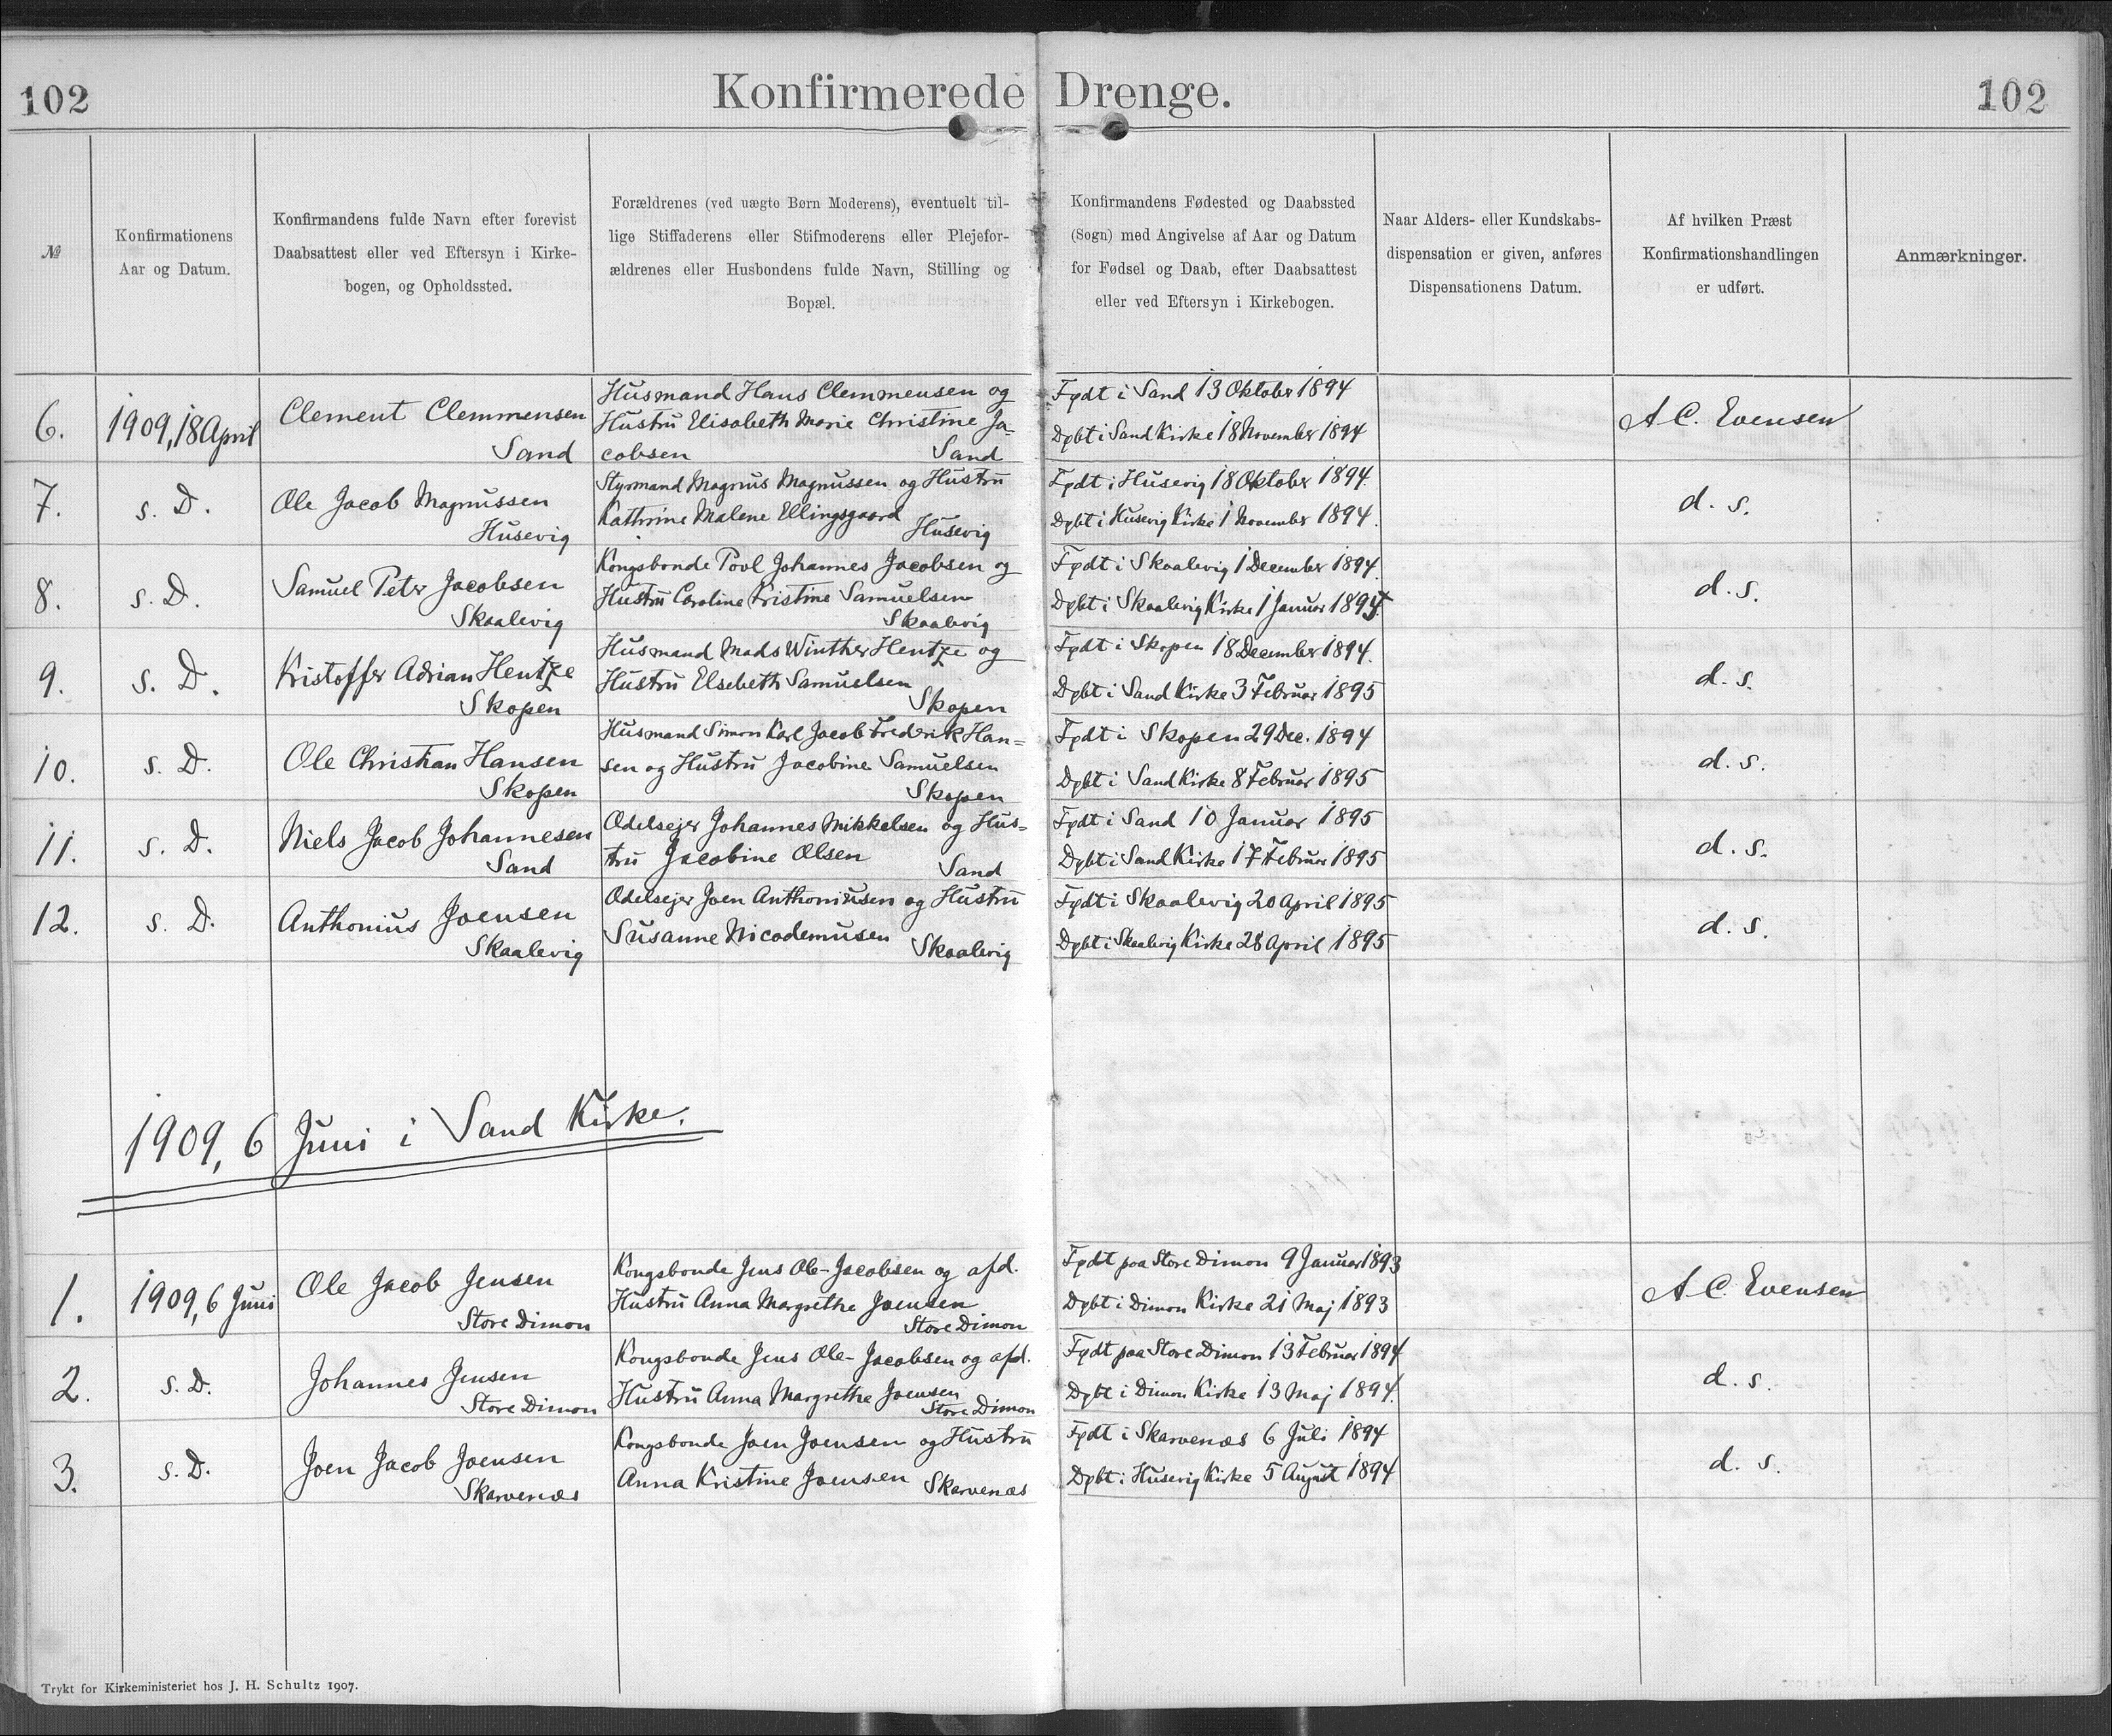 102
Konfirmerede Drenge.
102
№
Konfirmationens
Aar og Datum.
Konfirmandens fulde Navn efter forevist
Daabsattest eller ved Eftersyn i Kirke-
bogen, og Opholdssted.
Forældrenes (ved uægte Børn Moderens), eventuelt til-
lige Stiffaderens eller Stifmoderens eller Plejefor-
ældrenes eller Husbondens fulde Navn, Stilling og
Bopæl.
Konfirmandens Fødested og Daabssted
(Sogn) med Angivelse af Aar og Datum
for Fødsel og Daab, efter Daabsattest
eller ved Eftersyn i Kirkebogen.
Naar Alders- eller Kundskabs-
dispensation er given, anføres
Dispensationens Datum.
Af hvilken Præst
Konfirmationshandlingen
er udført.
Anmærkninger.
6.
1909, 18 April
Clement Clemmensen
Sand
Husmand Hans Clemmensen og
Hustru Elisabeth Marie Christine Ja-
cobsen Sand
Født i Sand 13 Oktober 1894
Døbt i Sand Kirke 18 November 1894
A C. Evensen
7.
s. D.
Ole Jacob Magnussen
Husevig
Styrmand Magnus Magnussen og Hustru
Kathrine Malene Ellingsgaard
Husevig
Født i Husevig 18 Oktober 1894.
Døbt i Husevig Kirke 1 November 1894.
d. s.
8.
s. D.
Samuel Peter Jacobsen
Skaalevig
Kongsbonde Povl Johannes Jacobsen og
Hustru Caroline Kristine Samuelsen
Skaalevig
Født i Skaalevig 1 December 1894.
Døbt i Skaalevig Kirke 1 Januar 1895
d. s.
9.
s. D.
Kristoffer Adrian Hentze
Skopen
Husmand Mads Winther Hentze og
Hustru Elsebeth Samuelsen
Skopen
Født i Skopen 18 December 1894.
Døbt i Sand Kirke 3 Februar 1895
d. s.
10.
s. D.
Ole Christian Hansen
Skopen
Husmand Simon Karl Jacob Frederik Han=
sen og Hustru Jacobine Samuelsen
Skopen
Født i Skopen 29 Dec. 1894
Døbt i Sand Kirke 8 Februar 1895
d. s.
11.
s. D.
Niels Jacob Johannesen
Sand
Odelsejer Johannes Mikkelsen og Hus=
tru Jacobine Olsen
Sand
Født i Sand 10 Januar 1895
Døbt i Sand Kirke 17 Februar 1895
d. s.
12.
s. D.
Anthonius Joensen
Skaalevig
Odelsejer Joen Anthoniusen og Hustru
Susanne Nicodemusen
Skaalevig
Født i Skaalevig 20 April 1895
Døbt i Skaalevig Kirke 28 April 1895
d. s.
1909, 6 Juni i Sand Kirke.
1.
1909, 6 Juni
Ole Jacob Jensen
Store Dimon
Kongsbonde Jens Ole-Jacobsen og afd.
Hustru Anna Margrethe Joensen
Store Dimon
Født paa Store Dimon 9 Januar 1893
Døbt i Dimon Kirke 21 Maj 1893
A C. Evensen
2.
s. D.
Johannes Jensen
Store Dimon
Kongsbonde Jens Ole-Jacobsen og afd.
Hustru Anna Margrethe Joensen
Store Dimon
Født paa Store Dimon 13 Februar 1894
Døbt i Dimon Kirke 13 Maj 1894.
d. s.
3.
s. D.
Joen Jacob Joensen
Skarvenæs
Kongsbonde Joen Joensen og Hustru
Anna Kristine Joensen Skarvenæs
Født i Skarvenæs 6 Juli 1894
Døbt i Husevig Kirke 5 August 1894
d. s.
Trykt for Kirkeministeriet hos J. H. Schultz 1907.